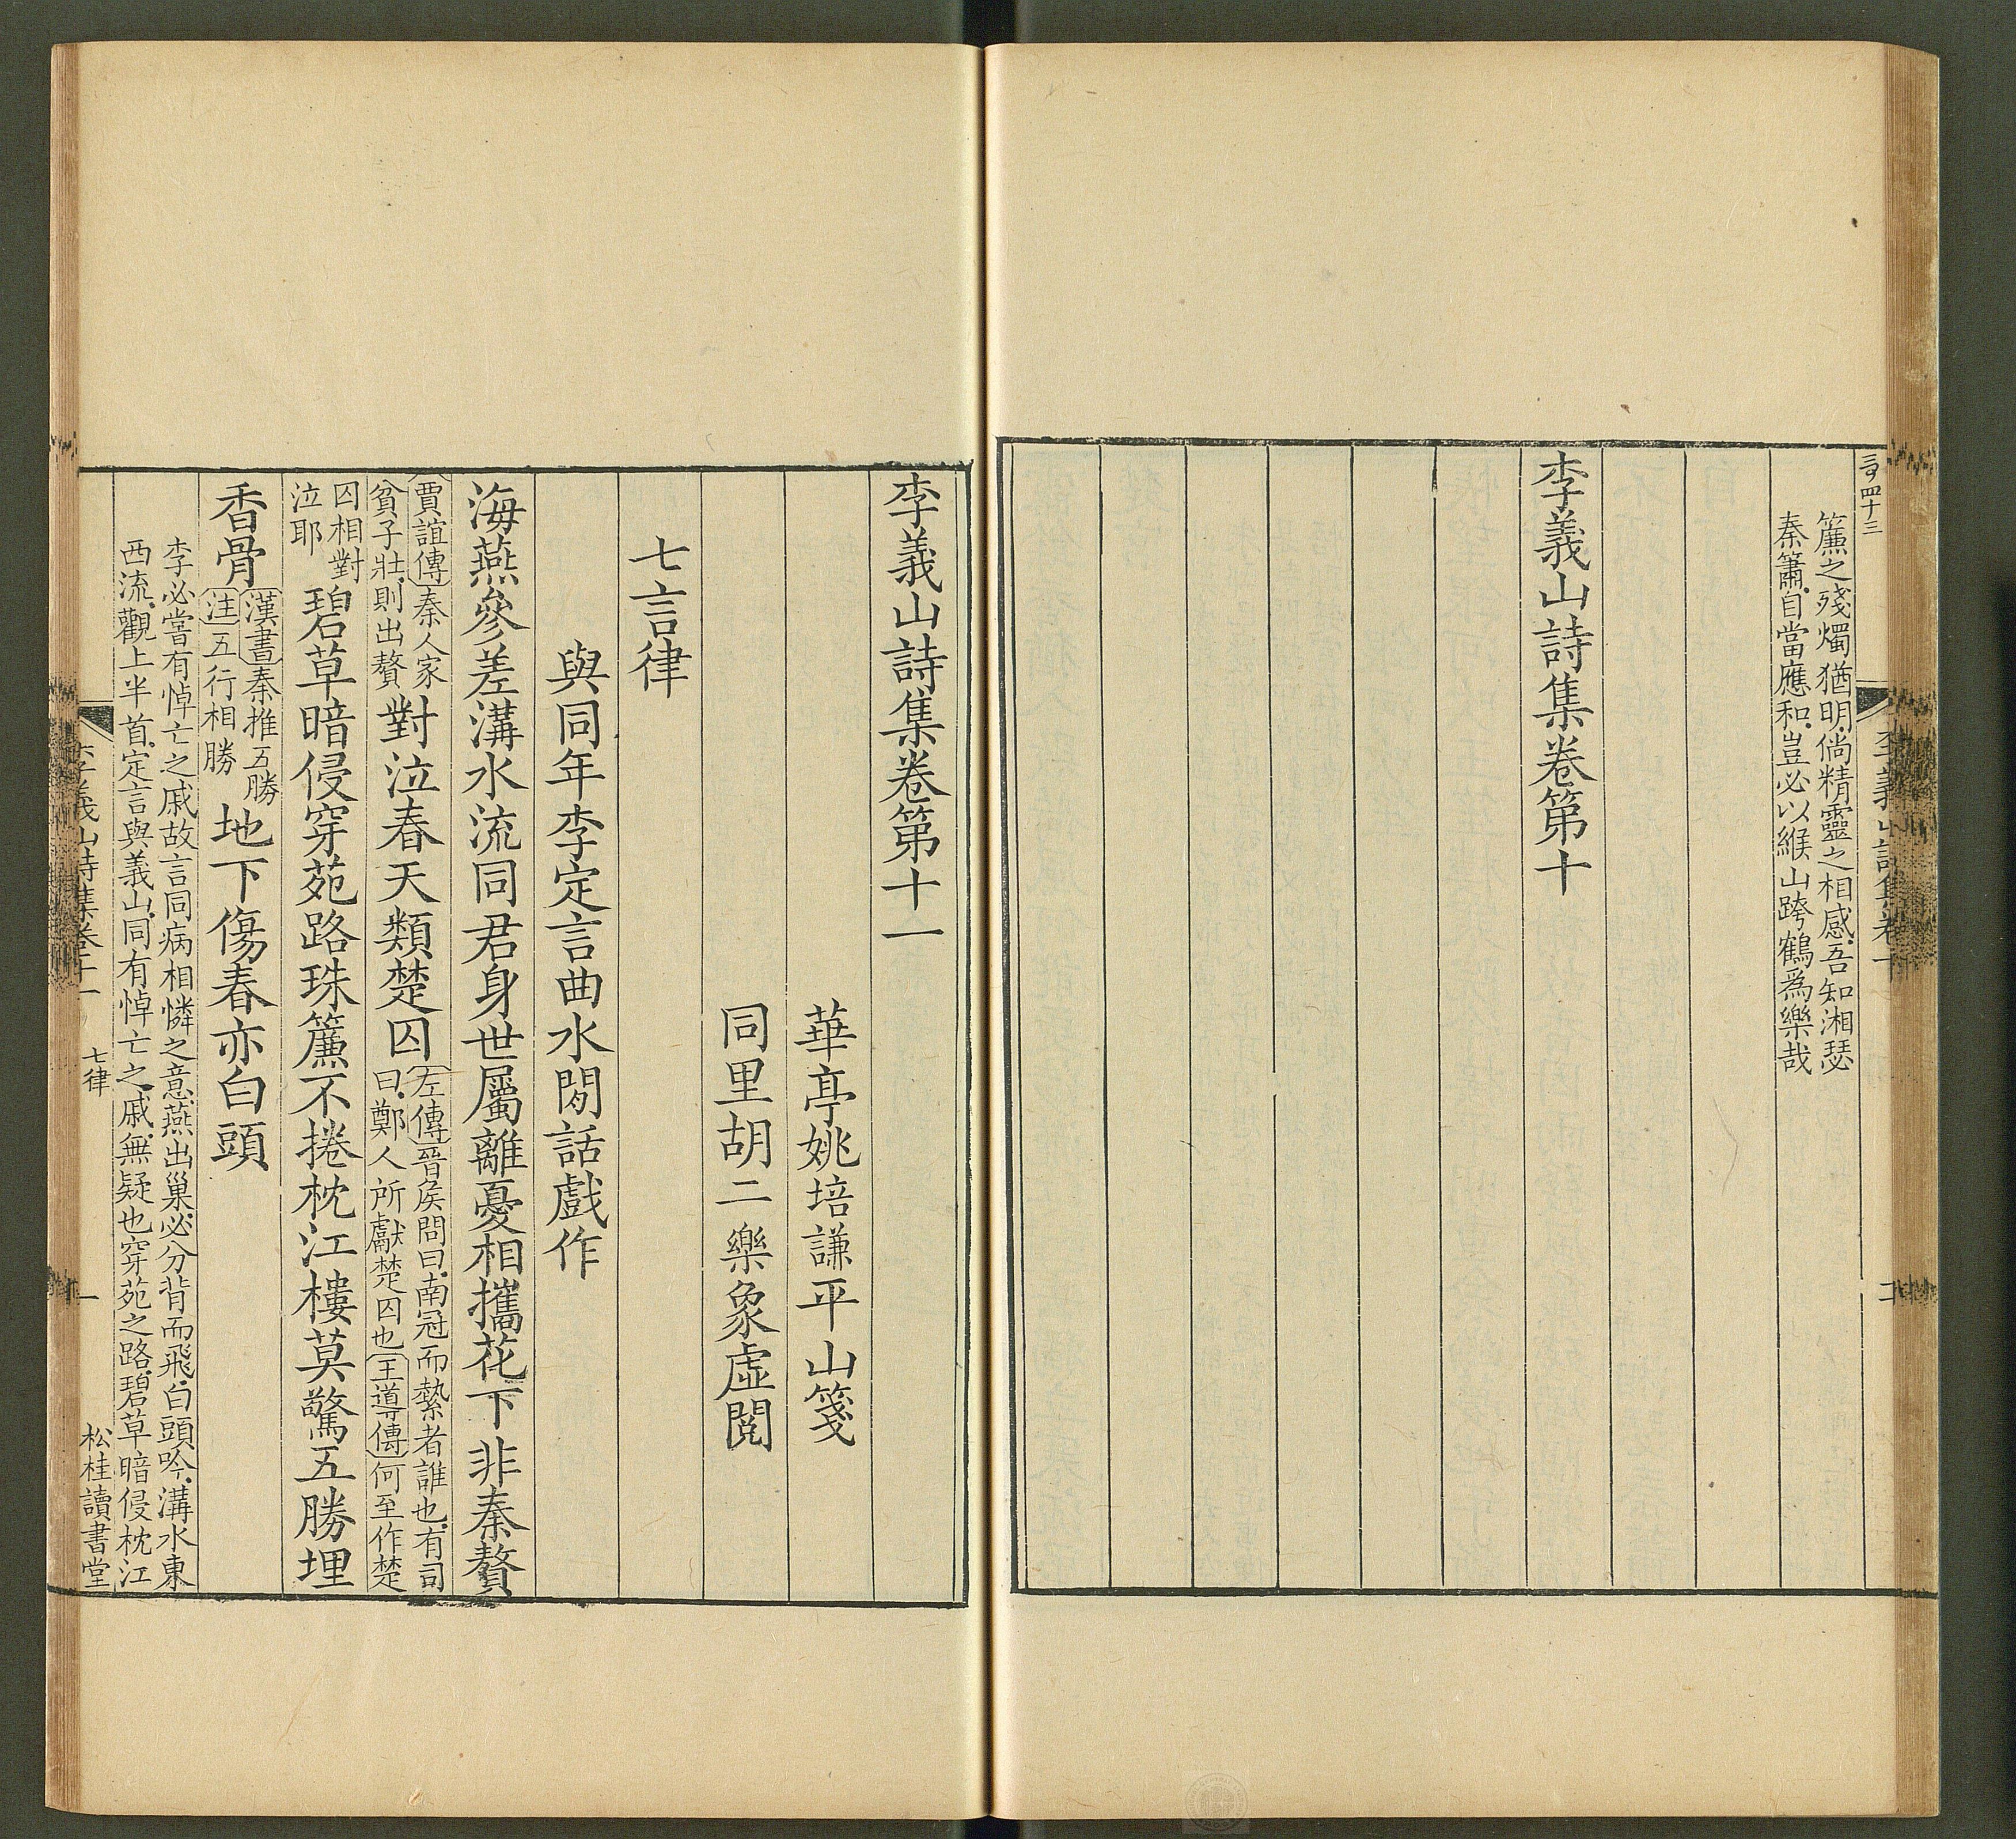 四十三
簾之殘燭猶明倘精靈之相感吾知湘瑟
秦簫自當應和豈必以緱山跨鶴爲樂哉
李義山詩集卷第十
李義山詩集卷十
李義山詩集卷第十一
華亭姚培謙平山箋
同里胡二樂象虛閱
七言律
與同年李定言曲水閒話戲作
海燕參差溝水流同君身世屬離憂相攜花下非秦贅
賈誼傳秦人家
貧子壯則出贅
對泣春天類楚囚
左傳晉侯問曰南冠而縶者誰也有司
曰鄭人所獻楚囚也王導傳何至作楚
囚相對
泣耶
碧草暗侵穿苑路珠簾不捲枕江樓莫驚五勝埋
香骨
漢書秦推五勝
注五行相勝
地下傷春亦白頭
李必嘗有悼亡之戚故言同病相憐之意燕出巢必分背而飛白頭吟溝水東
西流觀上半首定言與義山同有悼亡之戚無疑也穿苑之路碧草暗侵枕江
李義山詩集卷十一
七律
一
松桂讀書堂